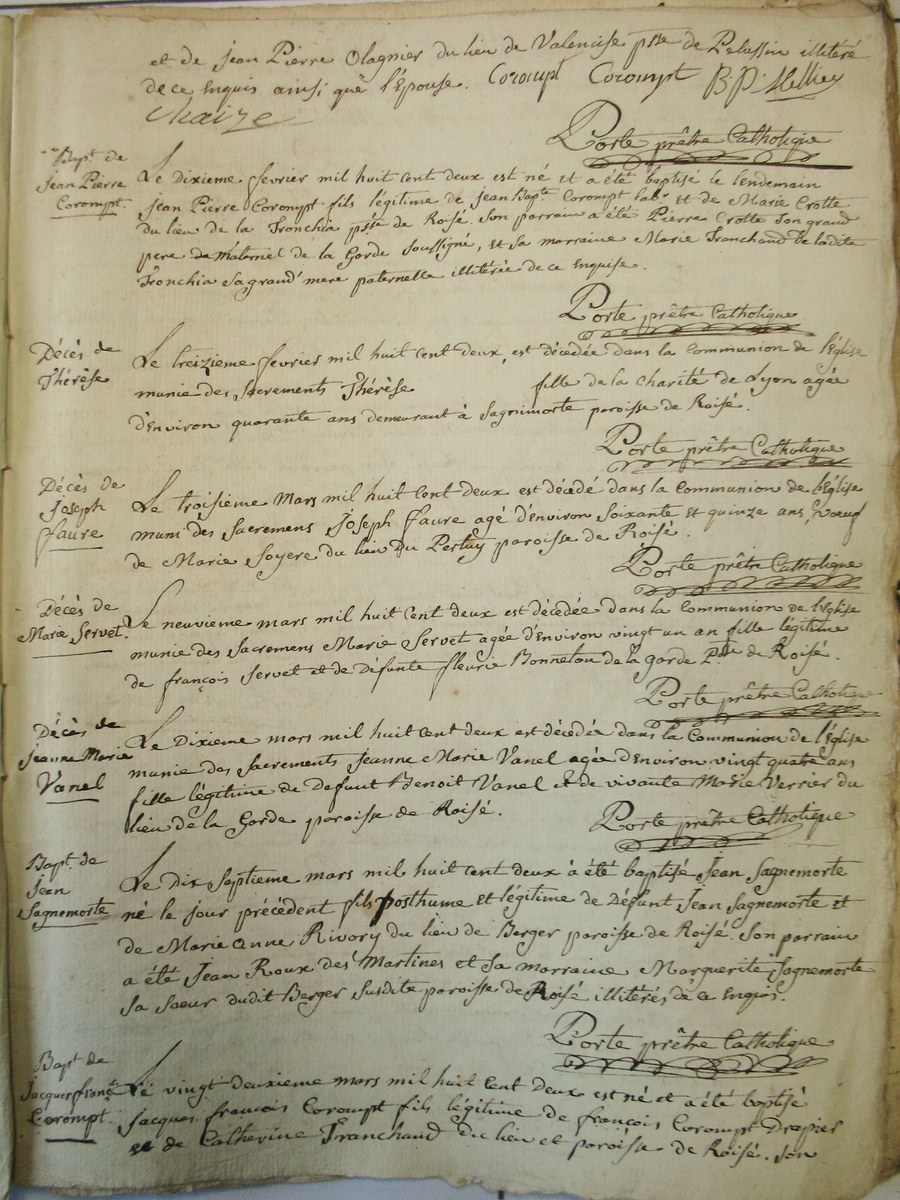 et de jean Pierre Olagnier du lieu de Valencise psse de Pelussin illitéré
de ce enquis ainsi que l'Epouse. Corompt Corompt
Chaize
Porte prêtre Catholique
Bapt. de
jean Pierre
Corompt
Le Dixieme fevrier mil huit cent deux est né et a été baptisé le lendemain
jean Pierre Corompt fils légitime de jean Bapte Corompt labr et de Marie Crotte
du lieu de la Fronchia psse de Roisé. Son parrain a été Pierre Crotte son grand
pere maternel de la Gorde soussigné, et sa marraine Marie Franchand de ladite
Fronchia sa grand'mere paternelle illitérée de ce enquise.
Porte prêtre Catholique
Décès de
Thérèse
Le treizieme fevrier mil huit cent deux, est décedée dans la Communion de l'Eglise
munie des Sacrements Thérèse fille de la Charité de Lyon agée
d'Environ quarante ans demeurant à Sagnimorte paroisse de Roisé.
Porte prêtre Catholique
Décès de
Joseph
faure
Le troisieme Mars mil huit Cent deux est décedé dans la Communion de l'Eglise
muni des Sacremens Joseph faure agé d'Environ Soixante et quinze ans, voeuf
de Marie Soyere du lieu Du Pertuy paroisse de Roisé.
Porte prêtre Catholique
Décès de
Marie Servet.
Le neuvieme mars mil huit Cent deux est décedée dans la Communion de l'Eglise
munie des Sacremens Marie Servet agée d'Environ vingt un an fille légitime
de françois Servet et de Défunte fleurie Bonneton de la gorde Psse de Roisé.
Porte prêtre Catholique
Décès de
jeanne Marie
Vanel
Le Dixieme mars mil huit cent deux est décedée dans la Communion de l'Eglise
munie des Sacrements jeanne Marie Vanel agée d'Environ vingt quatre ans
fille légitime de defunt Benoit Vanel et de vivante Marie Verrier du
lieu de la Gorde paroisse de Roisé.
Porte prêtre Catholique
Bapt. de
Jean
Sagnemorte
Le Dix Septieme mars mil huit Cent deux à été baptisé Jean Sagnemorte
né le jour précédent fils posthume et légitime de Défunt Jean Sagnemorte et
de Marie Anne Rivory du lieu de Berger paroisse de Roisé. Son parrain
a été Jean Roux des Martines et Sa marraine Marguerite Sagnemorte
Sa Soeur dudit Berger Susdite paroisse de Roisé illitérés de ce Enquis.
Porte prêtre Catholique
Bapt de
Jacques franç
Corompt.
Le vingt deuxieme mars mil huit Cent Deux est né et a été baptisé
jacques françois Corompt fils légitime de françois Corompt Drapier
et de Catherine Franchand du lieu et paroisse de Roisé. Son